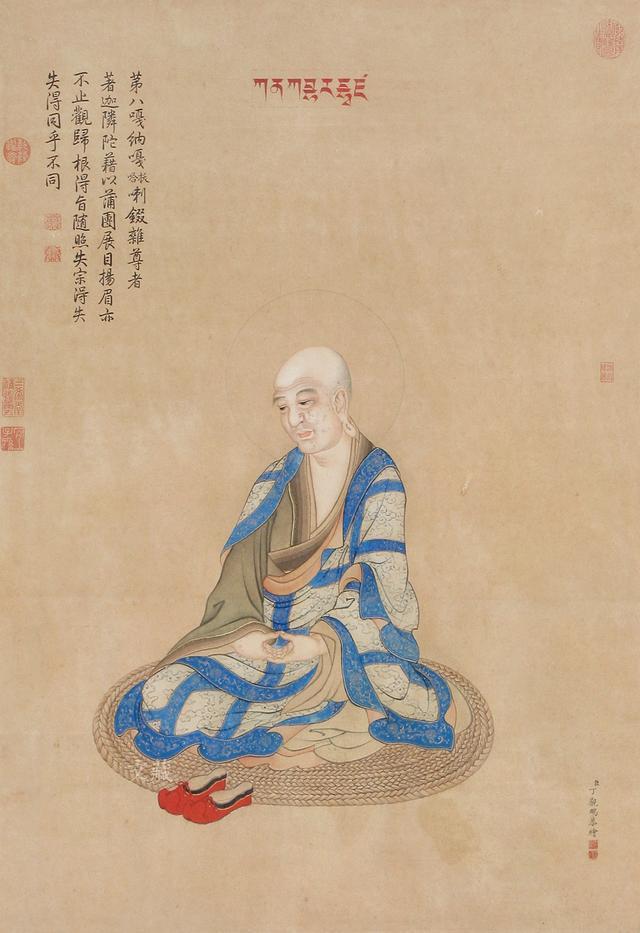 ཀནཀབྷརདྭཛ
苐八嘎納嘎拔哈喇錣雜尊者
著迦隣陀藉以蒲團展目揚眉亦
不止觀歸根得旨隨照失宗得失
失得同乎不同
臣丁觀鵬恭繪